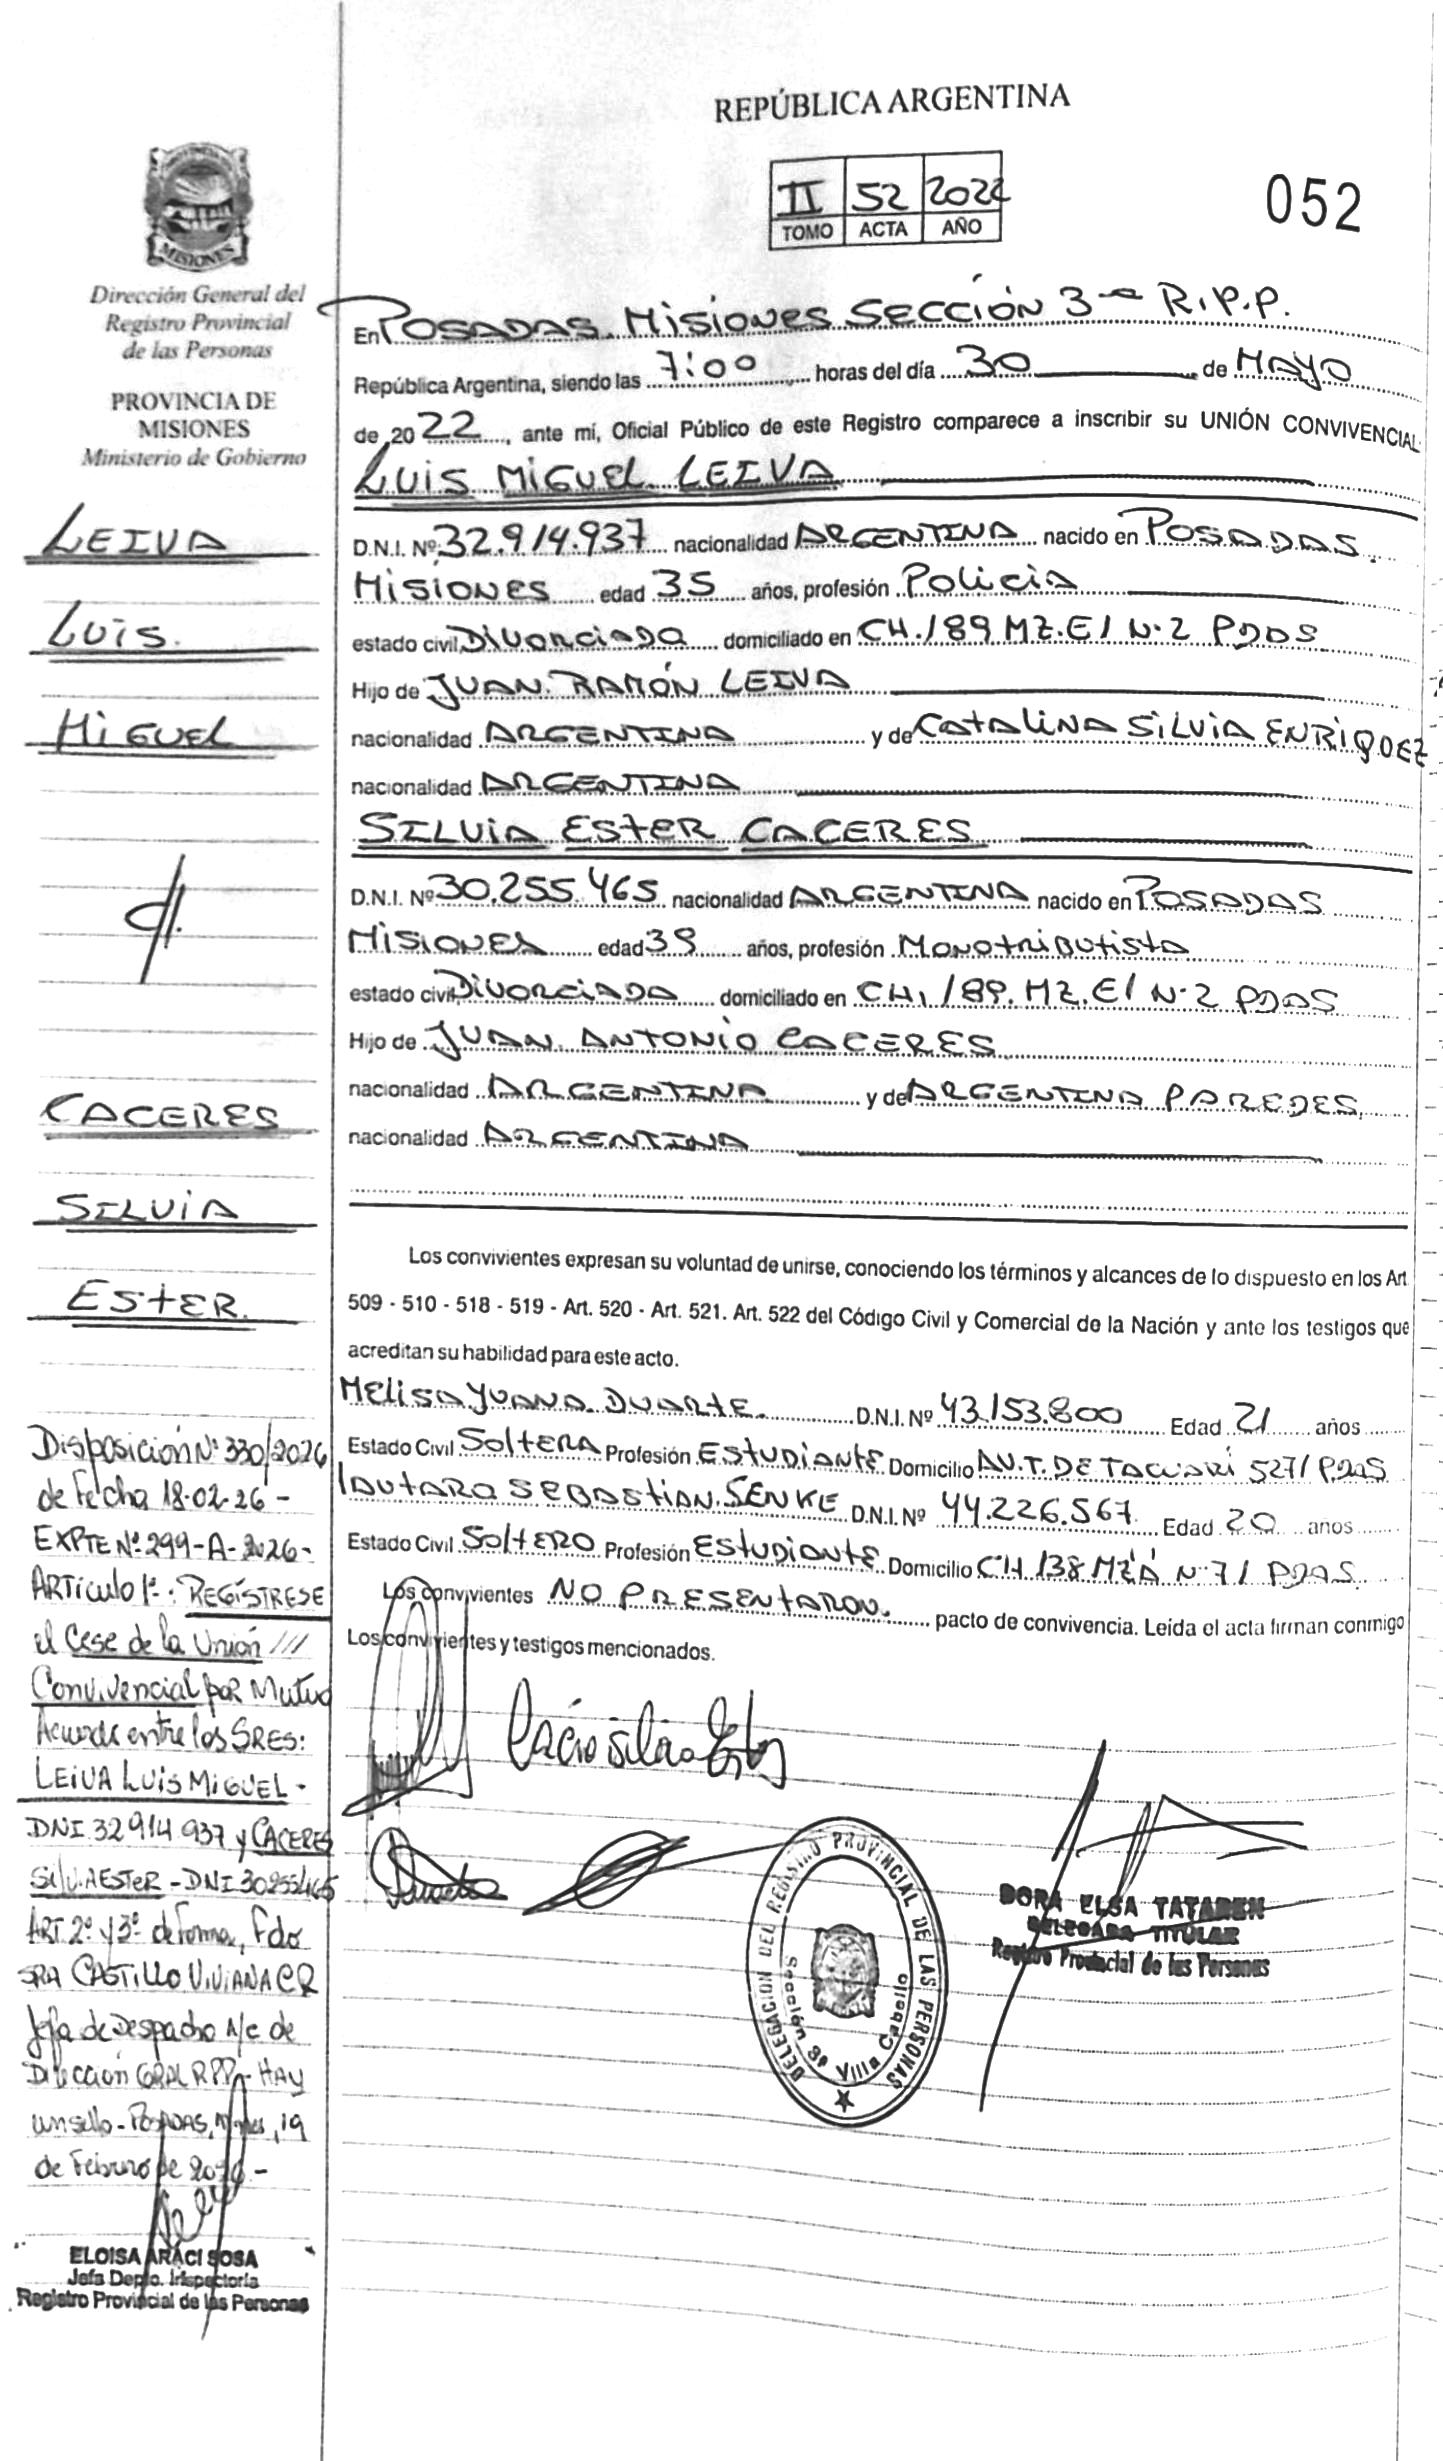 REPÚBLICA ARGENTINA
II 52 2022
TOMO ACTA AÑO
052
MISIONES
Dirección General del
Registro Provincial
de las Personas
PROVINCIA DE
MISIONES
Ministerio de Gobierno
LEIVA
LUIS
MIGUEL
CACERES
SILVIA
ESTER
Disposición Nº 330/2026
de Fecha 18-02-26-
EXPTE Nº 299-A-2026-
ARTICULO 1º: REGÍSTRESE
el Cese de la Unión ///
Convivencial por Mutuo
Acuerdo entre los SRES:
LEIVA LUIS MIGUEL-
DNI 32 914 937 y CACERES
SILVIA ESTER - DNI 30255465
ART 2º y 3º de forma, Fdo
SRA CASTILLO VIVIANA C R
Jefa de Despacho A/c de
Dirección GRAL RPP- HAY
un sello- POSADAS, Mnes, 19
de Febrero de 2026-
ELOISA ARACI SOSA
Jefa Depto. Inspectoría
Registro Provincial de las Personas
En POSADAS. MISIONES SECCIÓN 3ª R.P.P.
República Argentina, siendo las 7:00 horas del día 30 de MAYO
de 2022, ante mí, Oficial Público de este Registro comparece a inscribir su UNIÓN CONVIVENCIAL
LUIS MIGUEL LEIVA
D.N.I. Nº 32.914.937 nacionalidad ARGENTINA nacido en POSADAS.
MISIONES edad 35 años, profesión POLICIA
estado civil DIVORCIADA domiciliado en CH.189 MZ.E1 N·2 PDAS
Hijo de JUAN RAMÓN LEIVA
nacionalidad ARGENTINA y de CATALINA SILVIA ENRIQUEZ
nacionalidad ARGENTINA
SILVIA ESTER CACERES
D.N.I. Nº 30.255.465 nacionalidad ARGENTINA nacido en POSADAS
MISIONES edad 39 años, profesión MONOTRIBUTISTA
estado civil DIVORCIADA domiciliado en CH.189. MZ.E1 N·2 PDAS
Hijo de JUAN ANTONIO CACERES
nacionalidad ARGENTINA y de ARGENTINA PAREDES
nacionalidad ARGENTINA
Los convivientes expresan su voluntad de unirse, conociendo los términos y alcances de lo dispuesto en los Art
509 - 510 - 518 - 519 - Art. 520 - Art. 521. Art. 522 del Código Civil y Comercial de la Nación y ante los testigos que
acreditan su habilidad para este acto.
MELISA YUANA DUARTE D.N.I. Nº 43.153.800 Edad 21 años
Estado Civil SOLTERA Profesión ESTUDIANTE Domicilio AV.T. DE TACUARÍ 5271 PDAS
LAUTARO SEBASTIAN SENKE D.N.I. Nº 44.226.567 Edad 20 años
Estado Civil SOLTERO Profesión ESTUDIANTE Domicilio CH 138 MZ A N·71 PDAS
Los convivientes NO PRESENTARON. pacto de convivencia. Leída el acta firman conmigo
Los convivientes y testigos mencionados.
Duarte
DELEGACION DEL REGISTRO PROVINCIAL DE LAS PERSONAS
Sección 3ª Villa Cabello
DORA ELSA TATAREN
DELEGADA TITULAR
Registro Provincial de las Personas